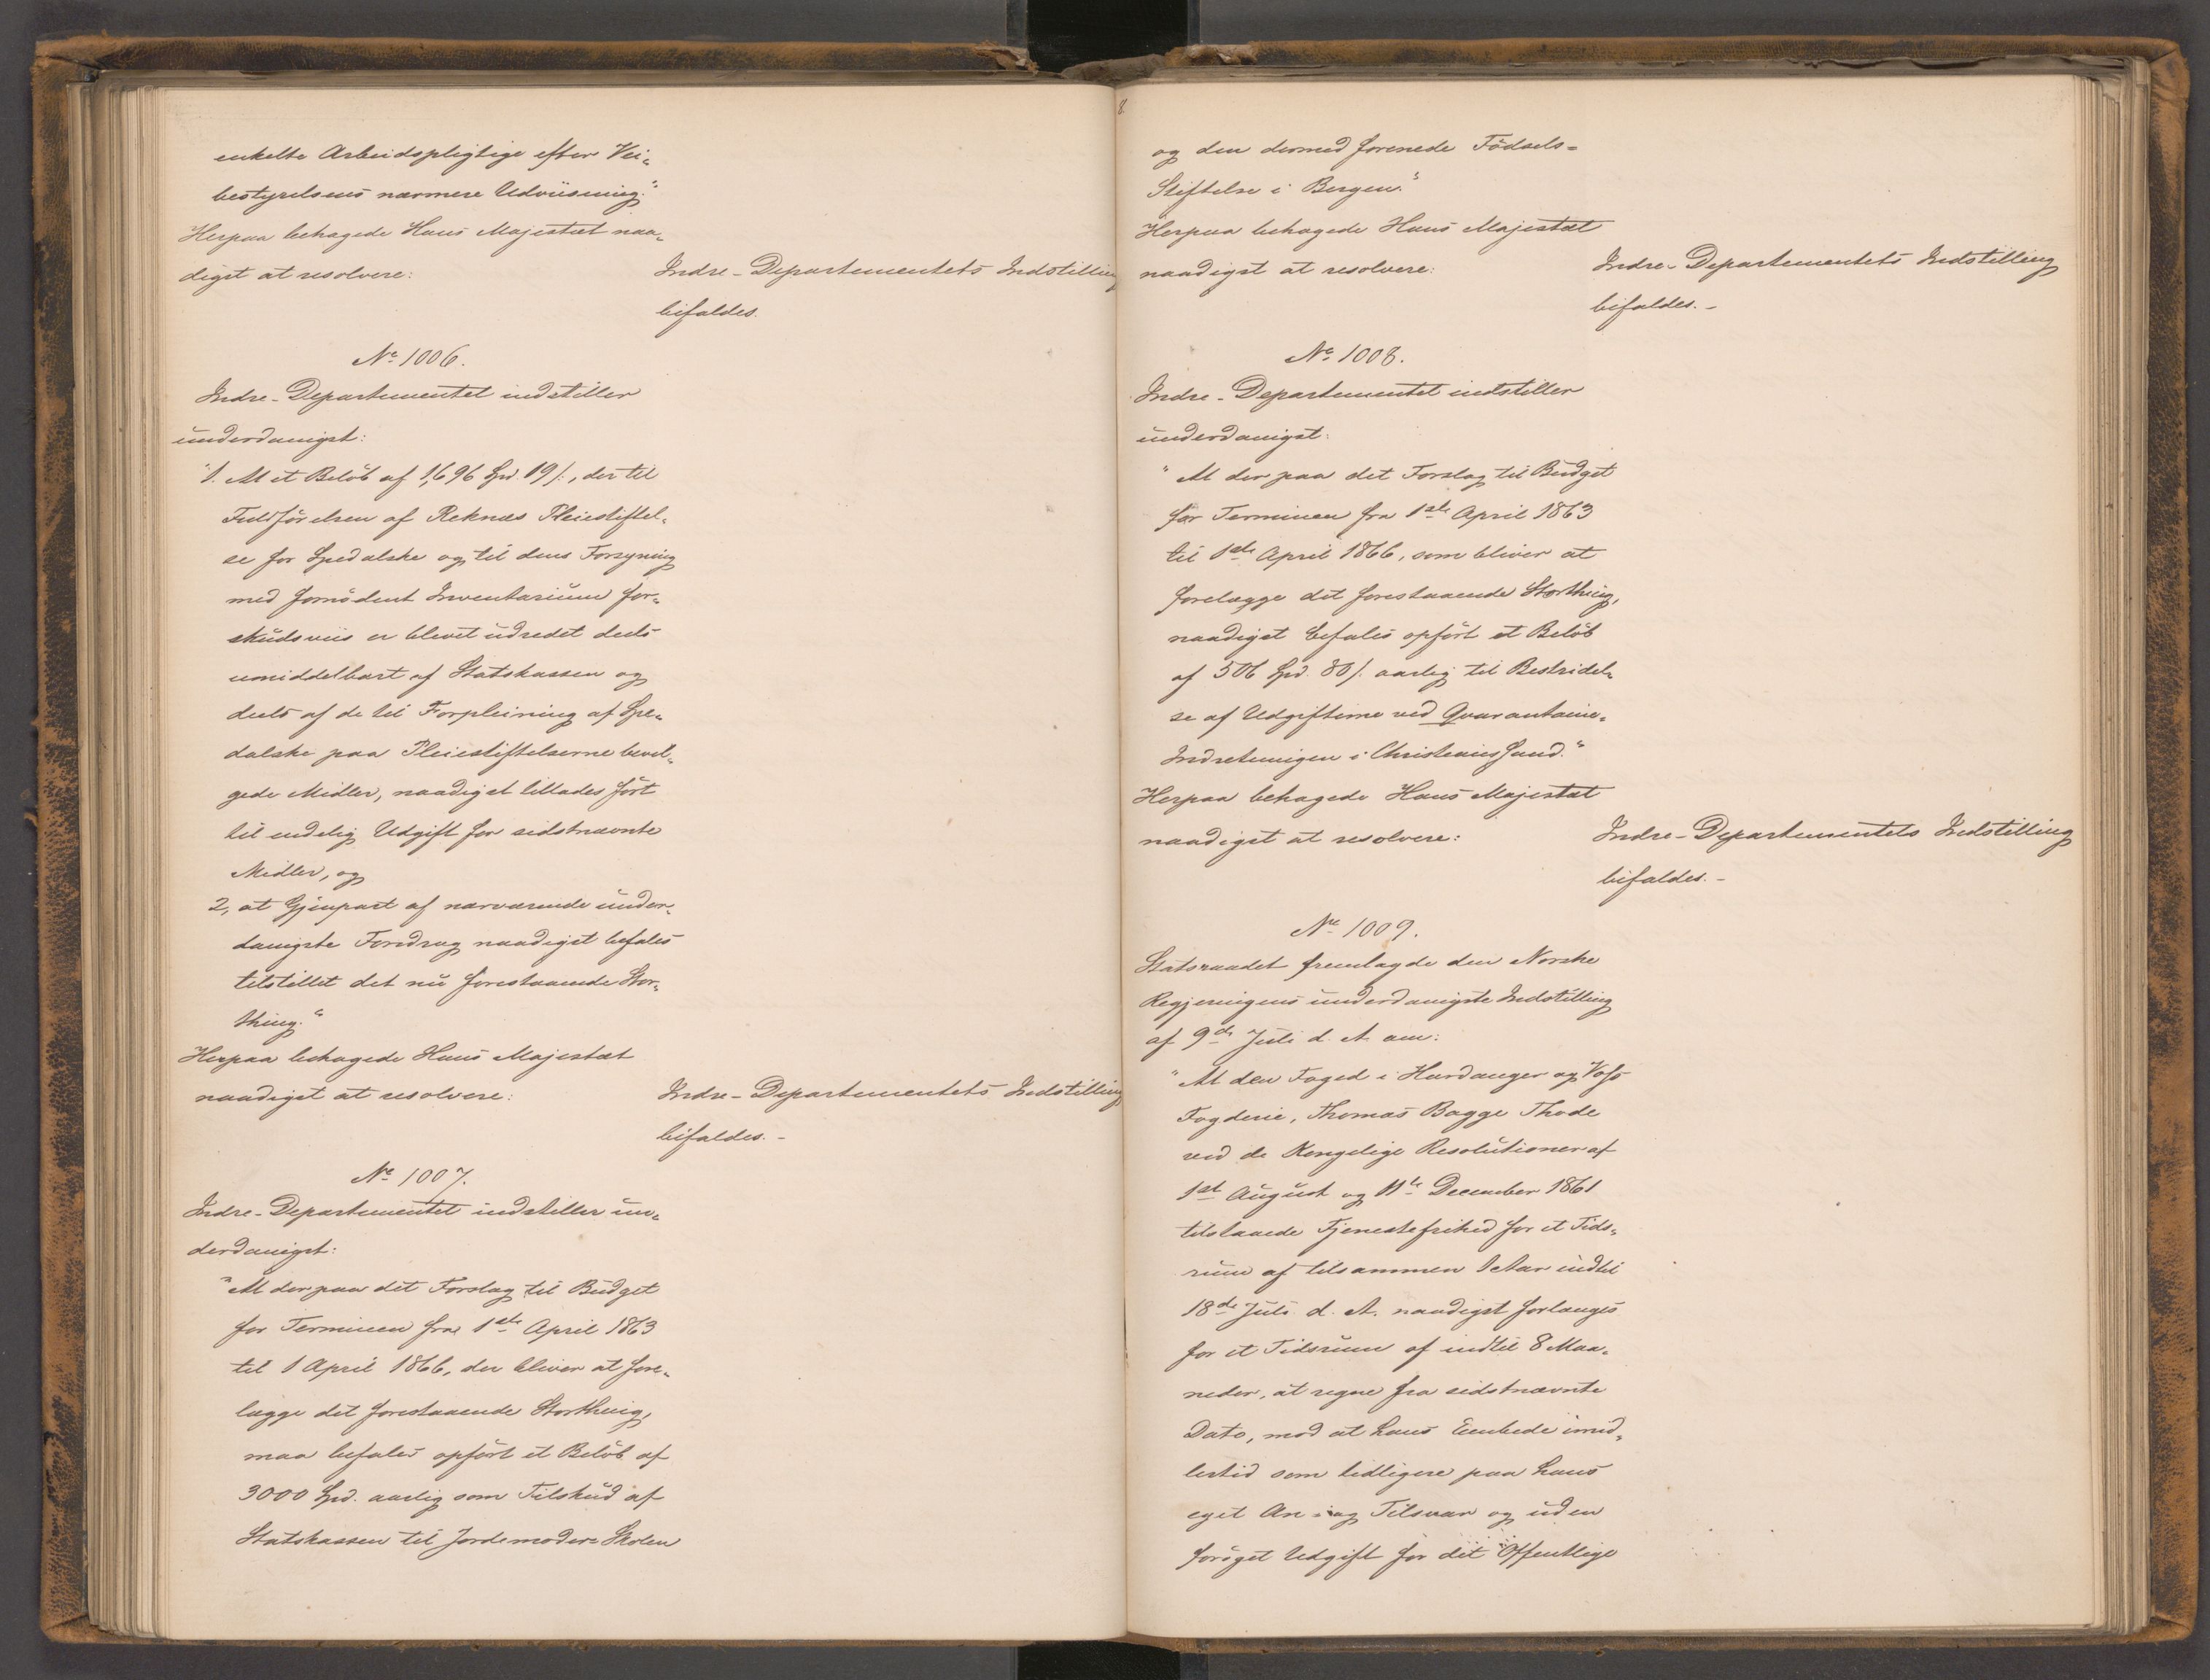 enkelte Arbeidspligtige efter Vei-
bestyrelsens nærmere Udviisning."
Herpaa behagede Hans Majestæt naa-
digst at resolvere:
Indre-Departementets Indstilling
bifaldes.
No 1006.
Indre-Departementet indstiller
underdanigst:
"1. At et Beløb af 1,696 Spd. 19 s., der til
Fuldførelsen af Reknæs Pleiestiftel-
se for Spedalske og til dens Forsyning
med fornødent Inventarium for-
skudsviis er blevet udredet deels
umiddelbart af Statskassen og
deels af de til Forpleining af Spe-
dalske paa Pleiestiftelserne bevil-
gede Midler, naadigst tillades ført
til endelig Udgift for sidstnævnte
Midler, og
2, at Gjenpart af nærværende under-
danigste Foredrag naadigst befales
tilstillet det nu forestaaende Stor-
thing."
Herpaa behagede Hans Majestæt
naadigst at resolvere:
Indre-Departementets Indstilling
bifaldes.-
No 1007.
Indre-Departementet indstiller un-
derdanigst:
"At der paa det Forslag til Budget
for Terminen fra 1ste April 1863
til 1 April 1866, der bliver at fore-
lægge det forestaaende Storthing,
maa befales opført et Beløb af
3000 Spd. aarlig som Tilskud af
Statskassen til Jordemoder-Skolen
og den dermed forenede Fødsels-
Stiftelse i Bergen."
Herpaa behagede Hans Majestæt
naadigst at resolvere:
Indre-Departementets Indstilling
bifaldes.-
No 1008.
Indre-Departementet indstiller
underdanigst:
"At der paa det Forslag til Budget
for Terminen fra 1ste April 1863
til 1ste April 1866, som bliver at
forelægge det forestaaende Storthing,
naadigst befales opført et Beløb
af 506 Spd. 80 s. aarlig til Bestridel-
se af Udgifterne ved Quarantaine-
Indretningen i Christianssund."
Herpaa behagede Hans Majestæt
naadigst at resolvere:
Indre-Departementets Indstilling
bifaldes.-
No 1009.
Statsraadet fremlagde den Norske
Regjeringens underdanigste Indstilling
af 9de Juli d. A. om:
"At den Foged i Hardanger og Voss
Fogderie, Thomas Bagge Thode
ved de Kongelige Resolutioner af
1st August og 11te December 1861
tilstaaede Tjenestefrihed for et Tids-
rum af tilsammen 1 Aar indtil
18de Juli d. A. naadigst forlænges
for et Tidsrum af indtil 8 Maa-
neder, at regne fra sidstnævnte
Dato, mod at hans Embede imid-
lertid som tidligere paa hans
eget An- og Tilsvar og uden
forøget Udgift for det Offentlige